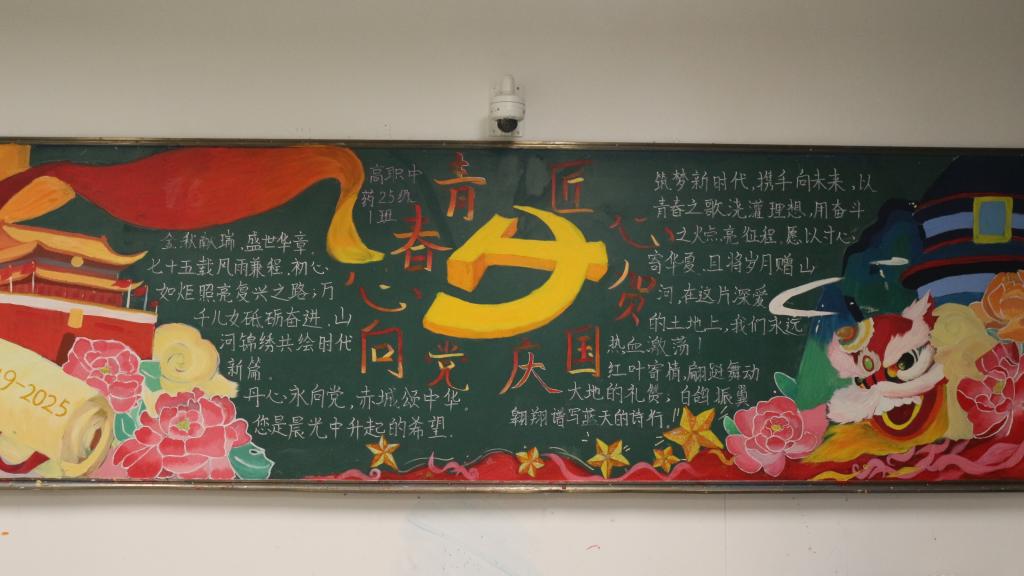 高职中
药25级
1班
青春心向党
匠心贺国庆
金秋献瑞，盛世华章
七十五载风雨兼程，初心
如炬照亮复兴之路；万
千儿女砥砺奋进，山
河锦绣共绘时代
新篇。
丹心永向党，赤诚颂中华。
您是晨光中升起的希望.
筑梦新时代，携手向未来，以
青春之歌浇灌理想，用奋斗
之火点亮征程。愿以寸心
寄华夏，且将岁月赠山
河，在这片深爱
的土地上，我们永远
热血激荡！
红叶寄情，翩跹舞动
大地的礼赞，白鸽振翼
翱翔谱写蓝天的诗行。!!
9-2025